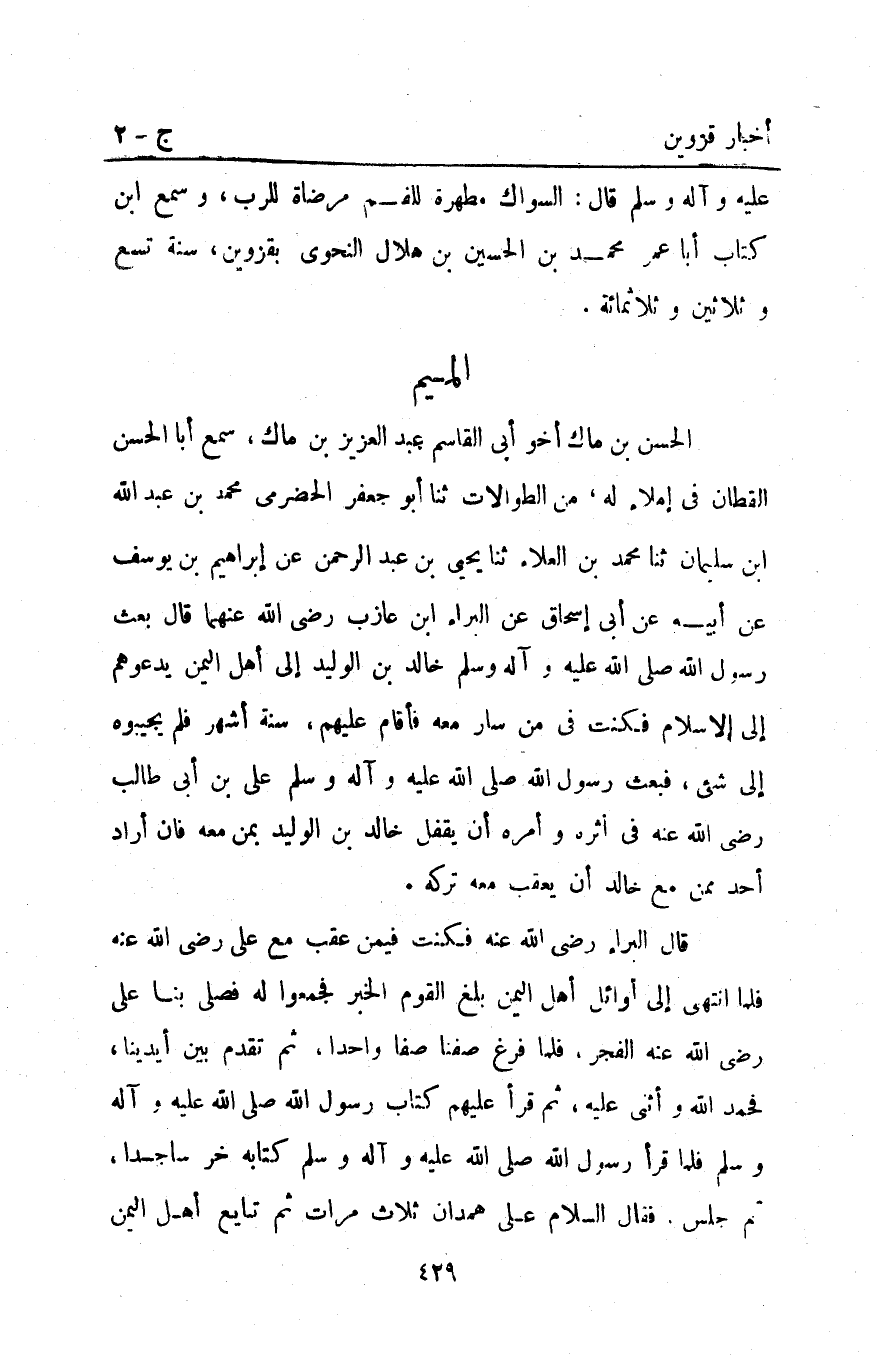 أخبار قزوين ج - ٢
عليه و آله و سلم قال : السواك مطهرة للفم مرضاة للرب ، و سمع ابن
كتاب أبا عمر محمد بن الحسين بن هلال النحوى بقزوين ، سنة تسع
و ثلاثين و ثلاثمائة .
الميم
الحسن بن ماك أخو أبى القاسم عبد العزيز بن ماك ، سمع أبا الحسن
القطان فى إملاء له ، من الطوالات ثنا أبو جعفر الحضرمى محمد بن عبد الله
ابن سليمان ثنا محمد بن العلاء ثنا يحيى بن عبد الرحمن عن إبراهيم بن يوسف
عن أبيه عن أبى إسحاق عن البراء ابن عازب رضى الله عنهما قال بعث
رسول الله صلى الله عليه و آله وسلم خالد بن الوليد إلى أهل اليمن يدعوهم
إلى الاسلام فكنت فى من سار معه فأقام عليهم ، ستة أشهر فلم يجيبوه
إلى شئ ، فبعث رسول الله صلى الله عليه و آله و سلم على بن أبى طالب
رضى الله عنه فى أثره و أمره أن يقفل خالد بن الوليد بمن معه فان أراد
أحد ممن مع خالد أن يعقب معه تركه .
قال البراء رضى الله عنه فكنت فيمن عقب مع على رضى الله عنه
فلما انتهى إلى أوائل أهل اليمن بلغ القوم الخبر فجمعوا له فصلى بنا على
رضى الله عنه الفجر ، فلما فرغ صفنا صفا واحدا ، ثم تقدم بين أيدينا ،
فحمد الله و أثنى عليه ، ثم قرأ عليهم كتاب رسول الله صلى الله عليه و آله
و سلم فلما قرأ رسول الله صلى الله عليه و آله و سلم كتابه خر ساجدا ،
ثم جلس . فقال السلام على همدان ثلاث مرات ثم تبايع أهل اليمن
٤٢٩